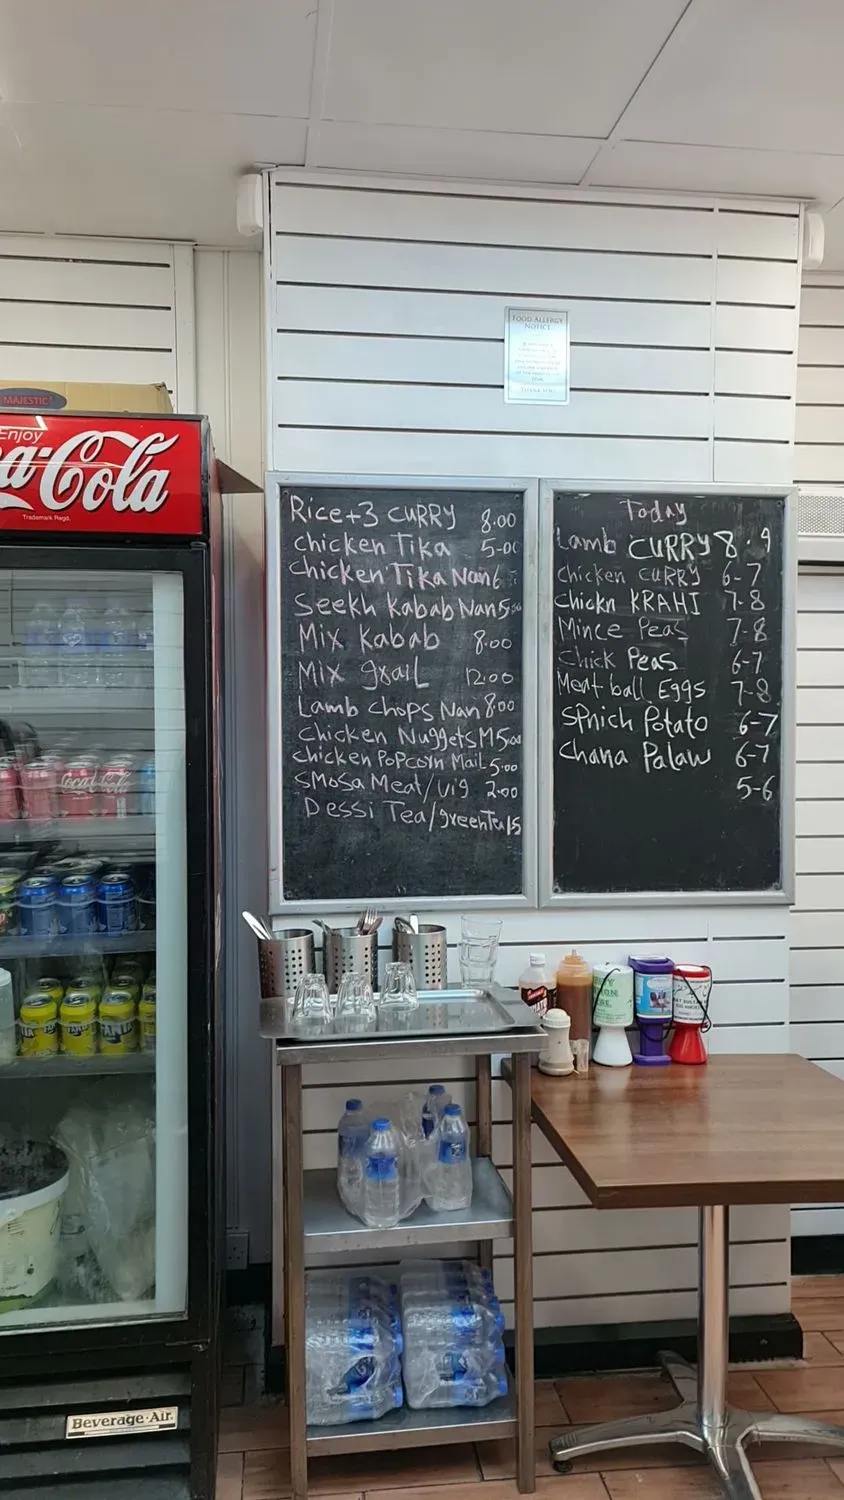 FOOD ALLERGY
NOTICE
THANK YOU
MAJESTIC
Enjoy
Coca-Cola
Trademark Regd.
Rice+3 CURRY 8.00
chicken Tika 5-00
chicken Tika Nan 6
Seekh Kabab Nan 5.00
Mix Kabab 8.00
Mix grail 12.00
Lamb chops Nan 8.00
Chicken Nuggets M 5.00
chicken PoPcorn Mail 5.00
SMoSa Meat/vig 2.00
Dessi Tea/greenTea 1.5
Today
Lamb CURRY 8.9
Chicken CURRY 6-7
Chickn KRAHI 7-8
Mince Peas 7-8
Chick Peas 6-7
Meat ball Eggs 7-8
SPnich Potato 6-7
Chana Palaw 6-7
5-6
Coca-Cola
Beverage-Air